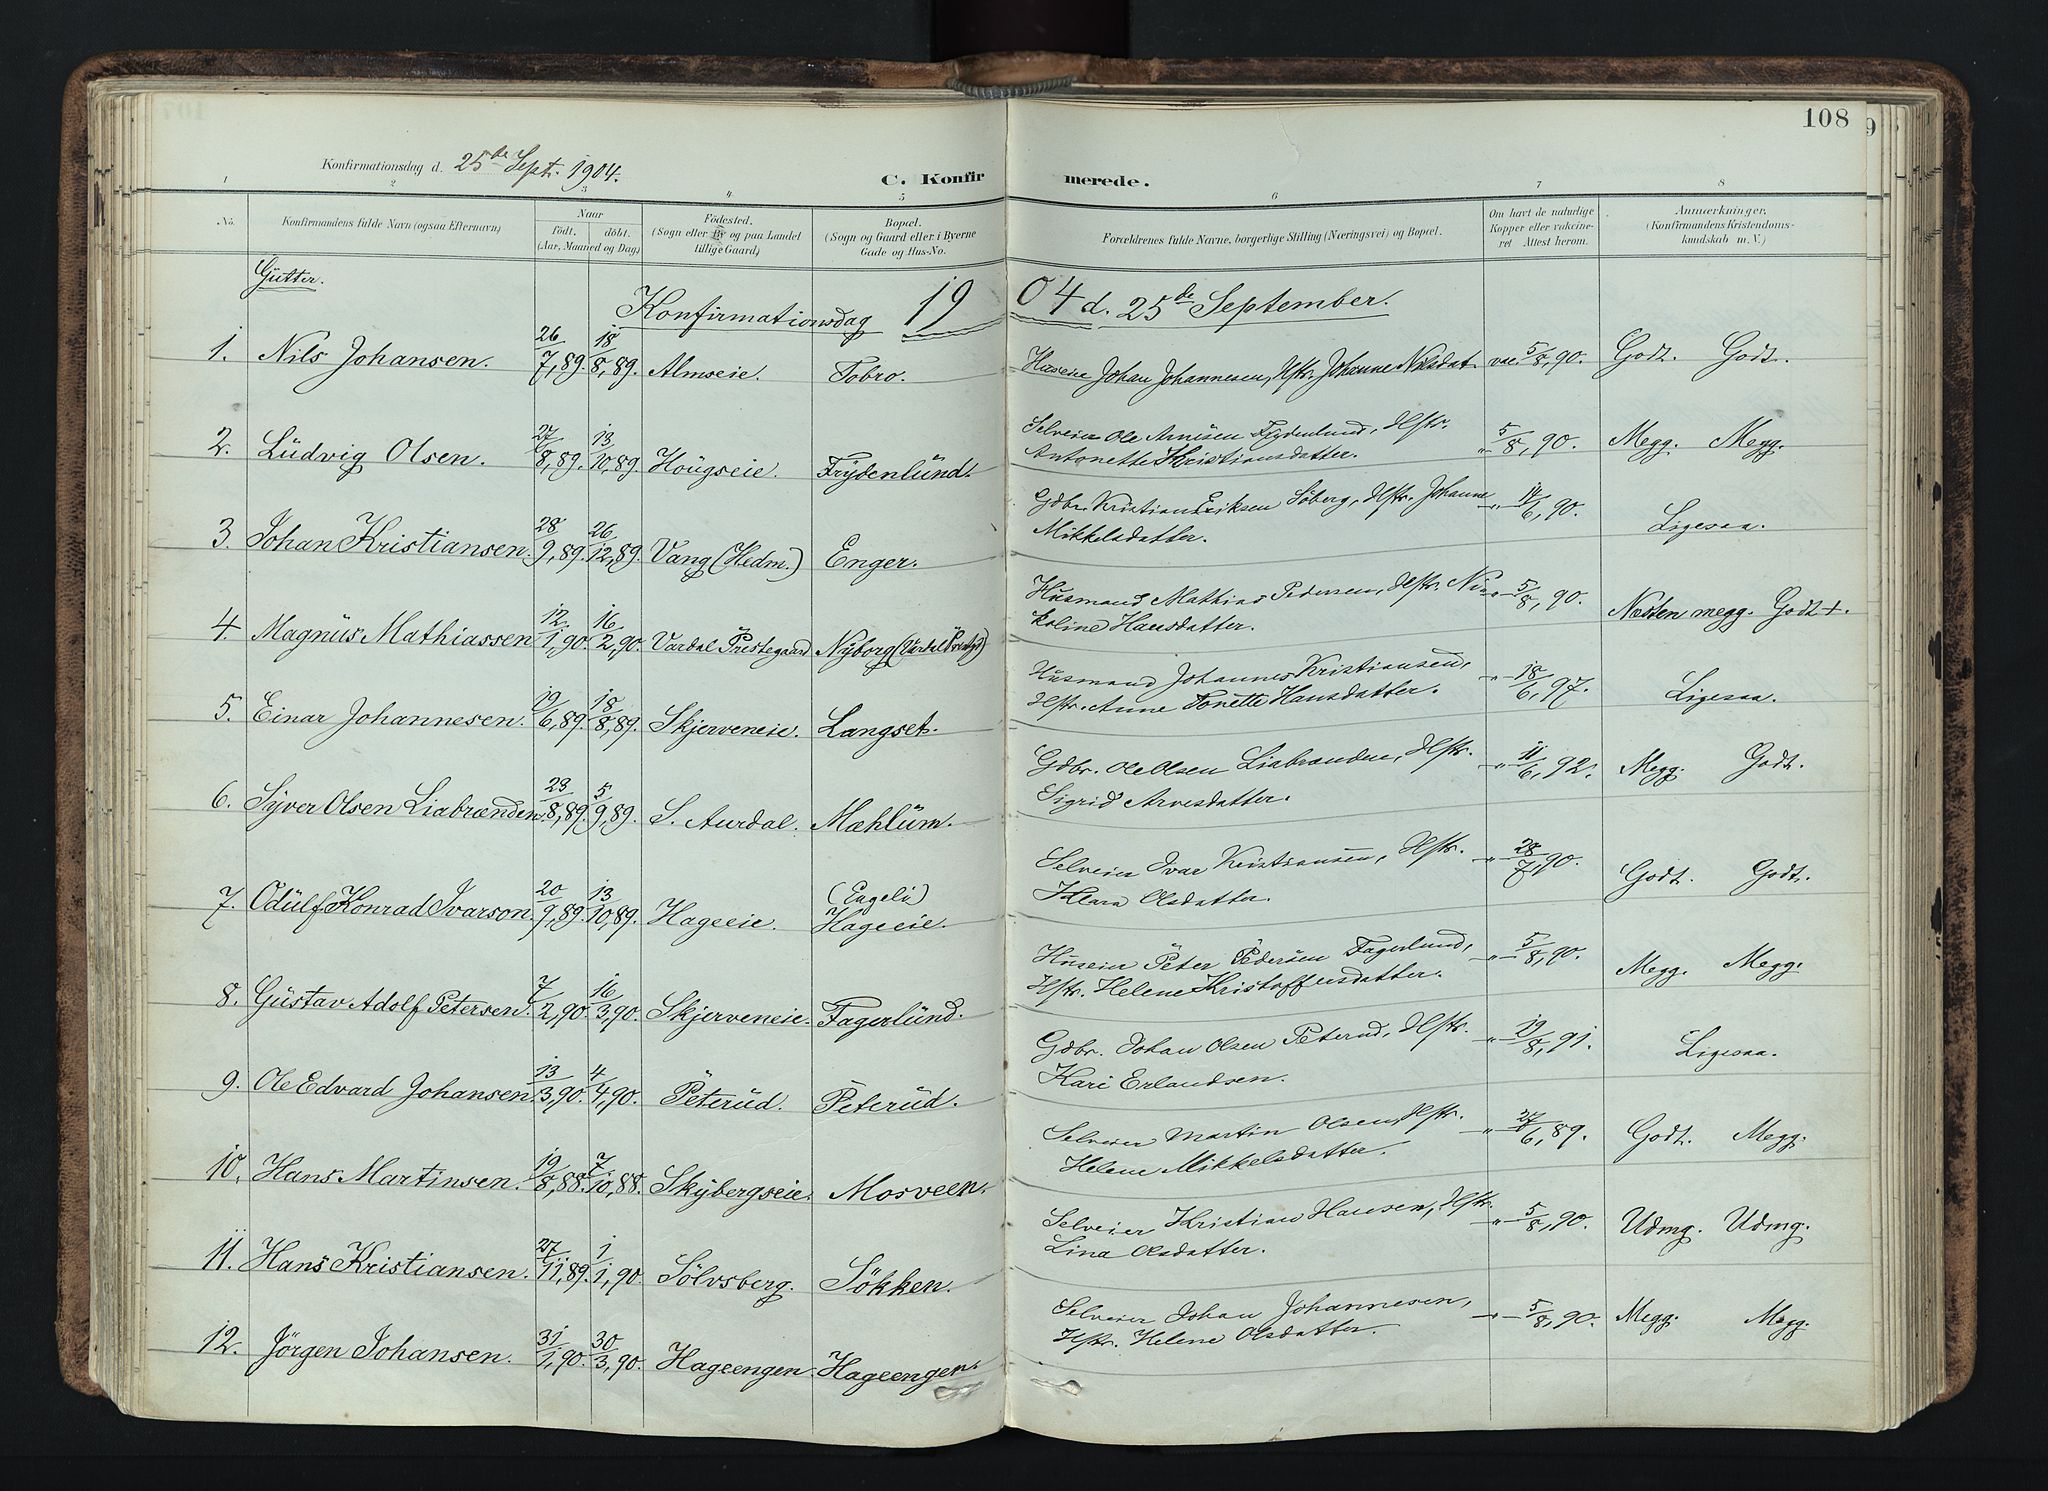 108
Konfirmationsdag d. 25de Sept. 1904.
C. Konfirmerede.
1 2 3 4 5 6 7 8
No. Konfirmandens fulde Navn (ogsaa Efternavn) Naar födt. döbt. (Aar, Maaned og Dag) Födested. (Sogn eller By og paa Landet tillige Gaard) Bopæl. (Sogn og Gaard eller i Byerne Gade og Hus-No. Forældrenes fulde Navne, borgerlige Stilling (Næringsvei) og Bopæl. Om havt de naturlige Kopper eller vaccineret Attest herom. Anmærkninger. (Konfirmandens Kristendomskundskab m. V.)
Gutter.
Konfirmationsdag 1904 d. 25de September.
1. Nils Johansen. 26/7, 89. 18/8, 89. Almseie. Tobro. Huseie Johan Johannesen, Hstr. Johanne Nilsdat. vac. 5/8, 90. Godt. Godt.
2. Ludvig Olsen. 27/8, 89. 13/10, 89. Hougseie. Frydenlund. Selveier Ole Arnesen Frydenlund, Hstr.
Antonette Kristiansdatter. -"- 5/8, 90. Megg. Megg.
3. Johan Kristiansen. 28/9, 89. 26/12, 89. Vang (Hedm.) Enger. Gdbr. Kristian Eriksen Söberg, Hstr. Johanne
Mikkelsdatter. -"- 14/6, 90. Ligesaa.
4. Magnus Mathiassen 12/1, 90. 16/2, 90. Vardal Prestegaard Nyborg (Vardal Prestgd) Husmand Mathias Pedersen, Hstr. Ni-
koline Hansdatter. -"- 5/8, 90. Næsten megg. Godt +.
5. Einar Johannesen. 19/6, 89. 18/8, 89. Skjerveneie. Langset. Husmand Johannes Kristiansen,
Hstr. Anne Tonette Hansdatter. -"- 18/6, 97. Ligesaa.
6. Syver Olsen Liabrænden. 23/8, 89. 5/9, 89. S. Aurdal. Mæhlum. Gdbr. Ole Olsen Liabrænden, Hstr.
Sigrid Arvesdatter. -"- 11/6, 92. Megg. Godt.
7. Odulf Konrad Ivarson. 20/9, 89. 13/10, 89. Hageeie. (Engeli) Hageeie. Selveier Ivar Kristiansen, Hstr.
Klara Olsdatter. -"- 28/7, 90. Godt. Godt.
8. Gustav Adolf Petersen. 7/2, 90. 16/3, 90. Skjerveneie. Fagerlund. Huseier Peter Pedersen Fagerlund,
Hstr. Helene Kristoffersdatter. -"- 5/8, 90. Megg. Megg.
9. Ole Edvard Johansen. 13/3, 90. 4/4, 90. Peterud. Peterud. Gdbr. Johan Olsen Peterud, Hstr.
Kari Erlandsen. -"- 19/8, 91. Ligesaa.
10. Hans Martinsen. 19/8, 88. 7/10, 88. Skybergseie. Mosveen. Selveier Martin Olsen, Hstr.
Helene Mikkelsdatter. -"- 27/6, 89. Godt. Megg.
11. Hans Kristiansen. 27/11, 89. 1/1, 90. Sölvsberg. Sökken. Selveier Kristian Hansen, Hstr.
Lina Olsdatter. -"- 5/8, 90. Udmg. Udmg.
12. Jörgen Johansen. 31/1, 90. 30/3, 90. Hageengen. Hageengen. Selveier Johan Johannesen,
Hstr. Helene Olsdatter. -"- 5/8, 90. Megg. Megg.